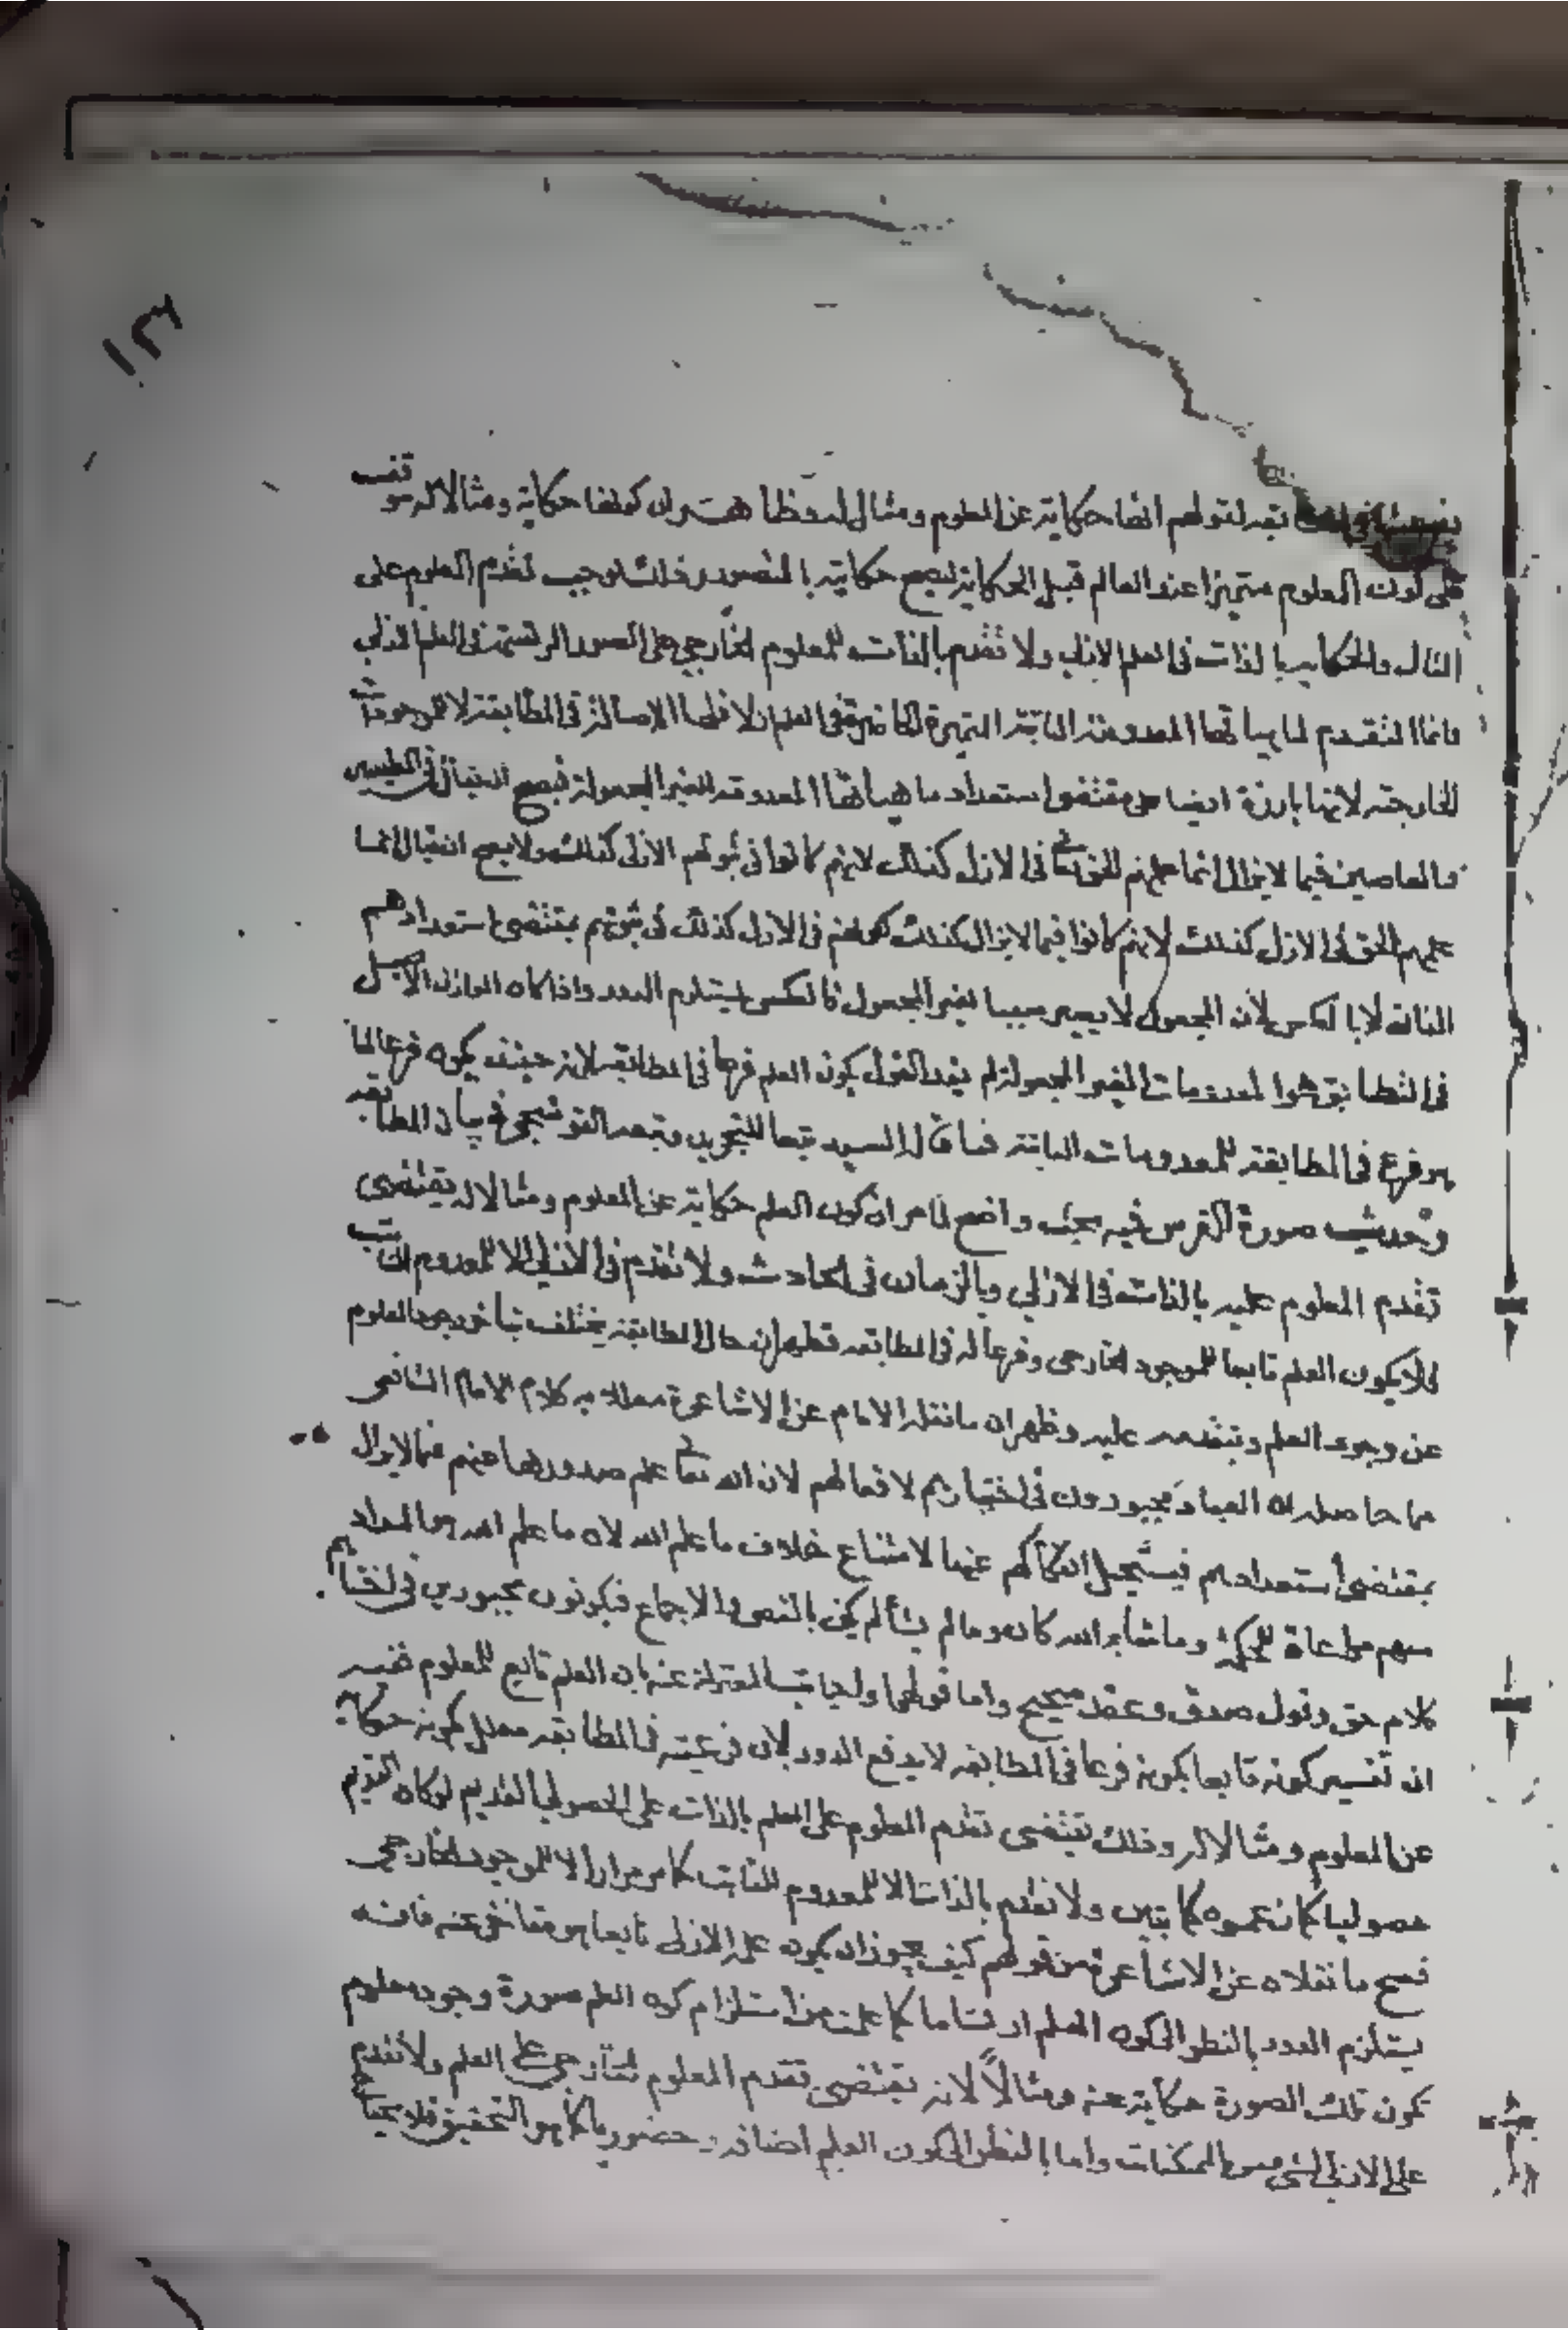 ١٣٤
تبعية لقولهم انها حكاية عن المعلوم ومثال له وظاهر ان كونها حكاية ومثالا له موقف
على كون المعلوم متميزا عند العالم قبل الحكاية ليصح حكايته بالمتصور وذلك يوجب تقدم المعلوم على
المثال والحكاية بالذات فى العلم الازلى ولا تقدم بالذات للمعلوم الخارجى على الصور المرتسمة فى العلم الازلى
وانما التقدم لماهياتها المعدومة الثابتة المتميزة فى العلم فلها الاصالة فى المطابقة لا للموجودات
الخارجية لانها بارزة ايضا على مقتضى استعداد ماهياتها المعدومة الغير المجعولة فيصح ان يقال فى المطيعين
والعاصين فيما لا يزال انما علمهم الحق تعالى فى الازل كذلك لانهم كانوا فى ثبوتهم الازلى كذلك ولا يصح ان يقال انما
علمهم الحق فى الازل كذلك لانهم كانوا فيما لا يزال كذلك لكونهم فى الازل كذلك فى ثبوتهم بمقتضى استعدادهم
الذاتى لا بالعكس لان المجعول لا يصير سببا لغير المجعول فالعكس يستلزم الدور واذا كان الاصل
فى التطابق هو المعدومات الغير المجعولة لم يفد القول بكون العلم فرعا فى المطابقة لانه حينئذ يكون فرعا لما
هو فرع فى المطابقة للمعدومات الثابتة فما قال السيد تبعا للتجريد وتبعه القوشجى فى بيان المطابقة
وحديث صورة الفرس فيه بحث واضح لما مر ان كون العلم حكاية عن المعلوم ومثالا له يقتضى
تقدم المعلوم عليه بالذات فى الازلى وبالزمان فى الحادث ولا تقدم فى الازلى الا للمعدوم الثابت
فلا يكون العلم تابعا للموجود الخارجى وفرعا له فى المطابقة فظهر ان حال المطابقة يختلف بتأخر وجود المعلوم
عن وجود العلم وبتقدمه عليه وظهر ان ما نقله الامام عن الاشاعرة معللا به كلام الامام الشافعى
مما حاصله ان العباد مجبورون فى اختيارهم لافعالهم لان الله تعالى علم صدورها عنهم فيما لا يزال
بمقتضى استعدادهم فيستحيل انفكاكهم عنها لامتناع خلاف ما علم الله لان ما علم الله هو المراد
منهم مراعاة للحكمة وما شاء الله كان وما لم يشأ لم يكن بالنص والاجماع فيكونون مجبورين فى اختيارهم
كلام حق وقول صدق وعقد صحيح واما قولهما ولجابت المعتزلة عنه بان العلم تابع للمعلوم ففيه
ان تفسير كونه تابعا بكونه فرعا فى المطابقة لا يدفع الدور لان فرعيته فى المطابقة معلل بكونه حكاية
عن المعلوم ومثالا له وذلك يقتضى تقدم المعلوم على العلم بالذات على الحصولى القديم لو كان القديم
حصوليا كما زعموه كما تبين ولا تقدم بالذات الا للمعدوم الثابت كما مر مرارا لا للموجود الخارجى
فصح ما نقلاه عن الاشاعرة من قولهم كيف يجوز ان يكون علم الازلى تابعا هو متأخر عنه فانه
يستلزم الدور بالنظر الى كون العلم ارتساما كما علمت من استلزام كون العلم صورة وجود معلوم
تكون تلك الصورة حكاية عنه ومثالاً لانه يقتضى تقدم المعلوم الخارجى على العلم ولا تقدم
على الازلى لشئ من الممكنات واما بالنظر الى كون العلم اضافة وحضوريا كما هو التحقيق فلا